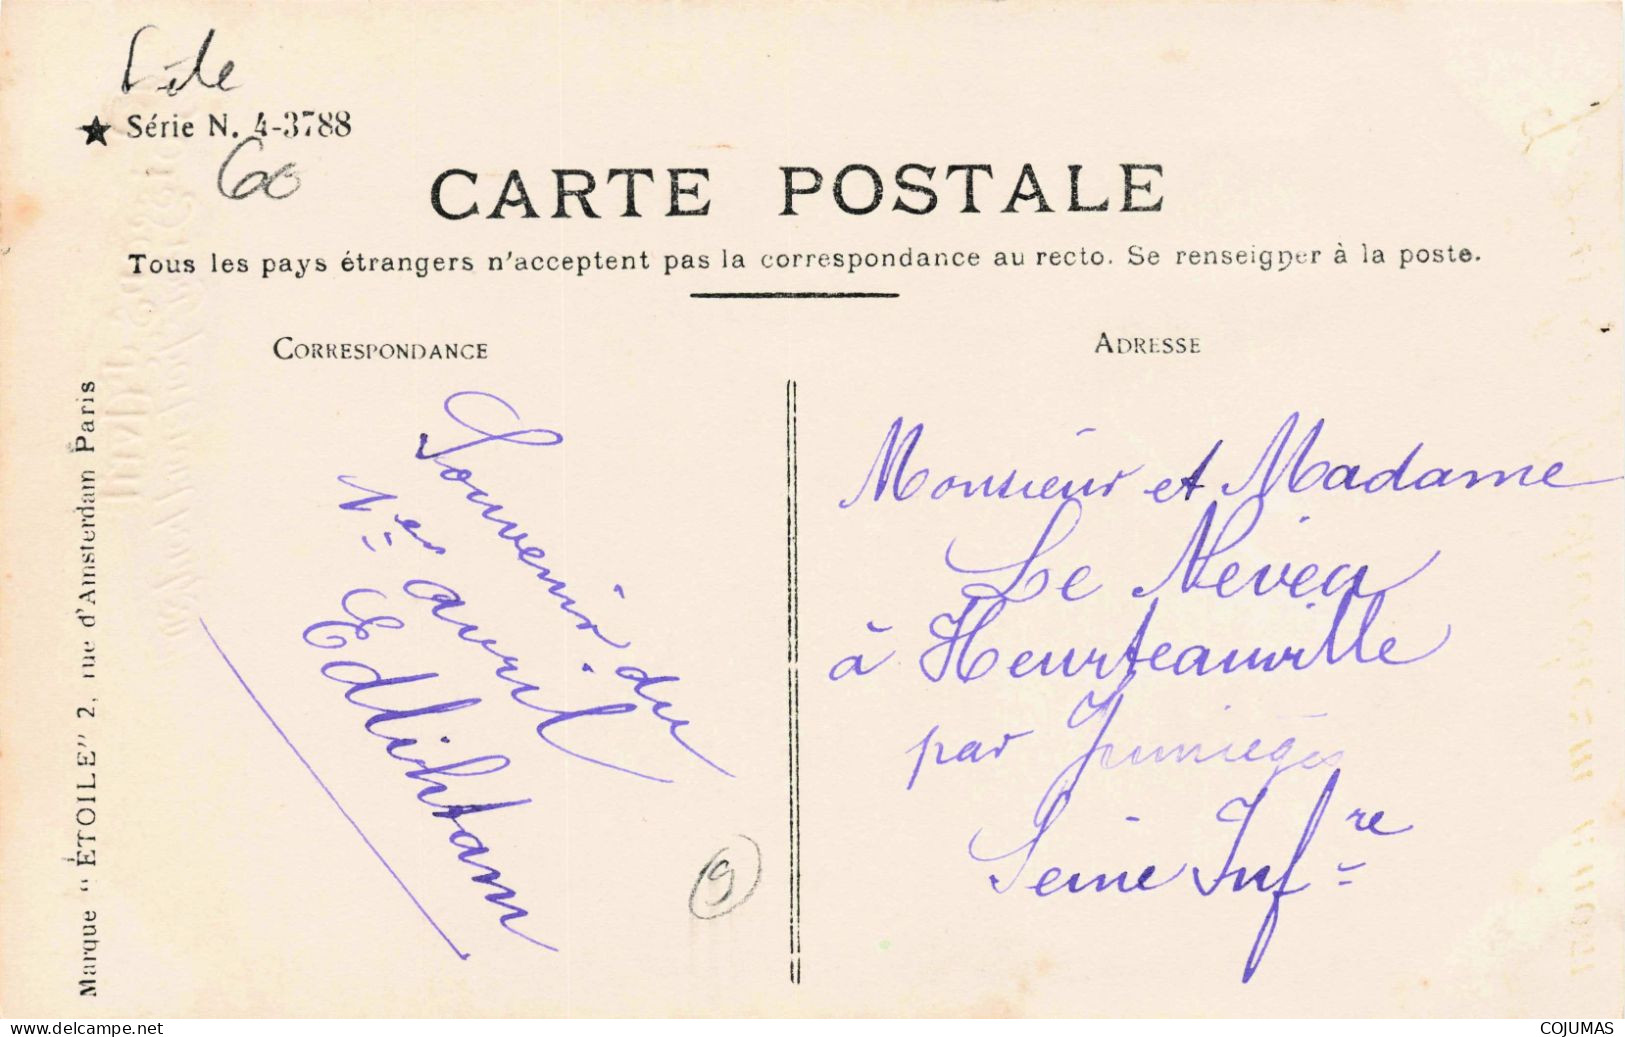 ★ Série N. 4-3788
60
CARTE POSTALE
Tous les pays étrangers n'acceptent pas la correspondance au recto. Se renseigner à la poste.
CORRESPONDANCE
Souvenir du
1er avril
ADRESSE
Monsieur et Madame
Le Neveu
à Heurteauville
par Jumièges
Seine Infre
9
Marque "ÉTOILE" 2, rue d'Amsterdam Paris
www.delcampe.net
COJUMAS